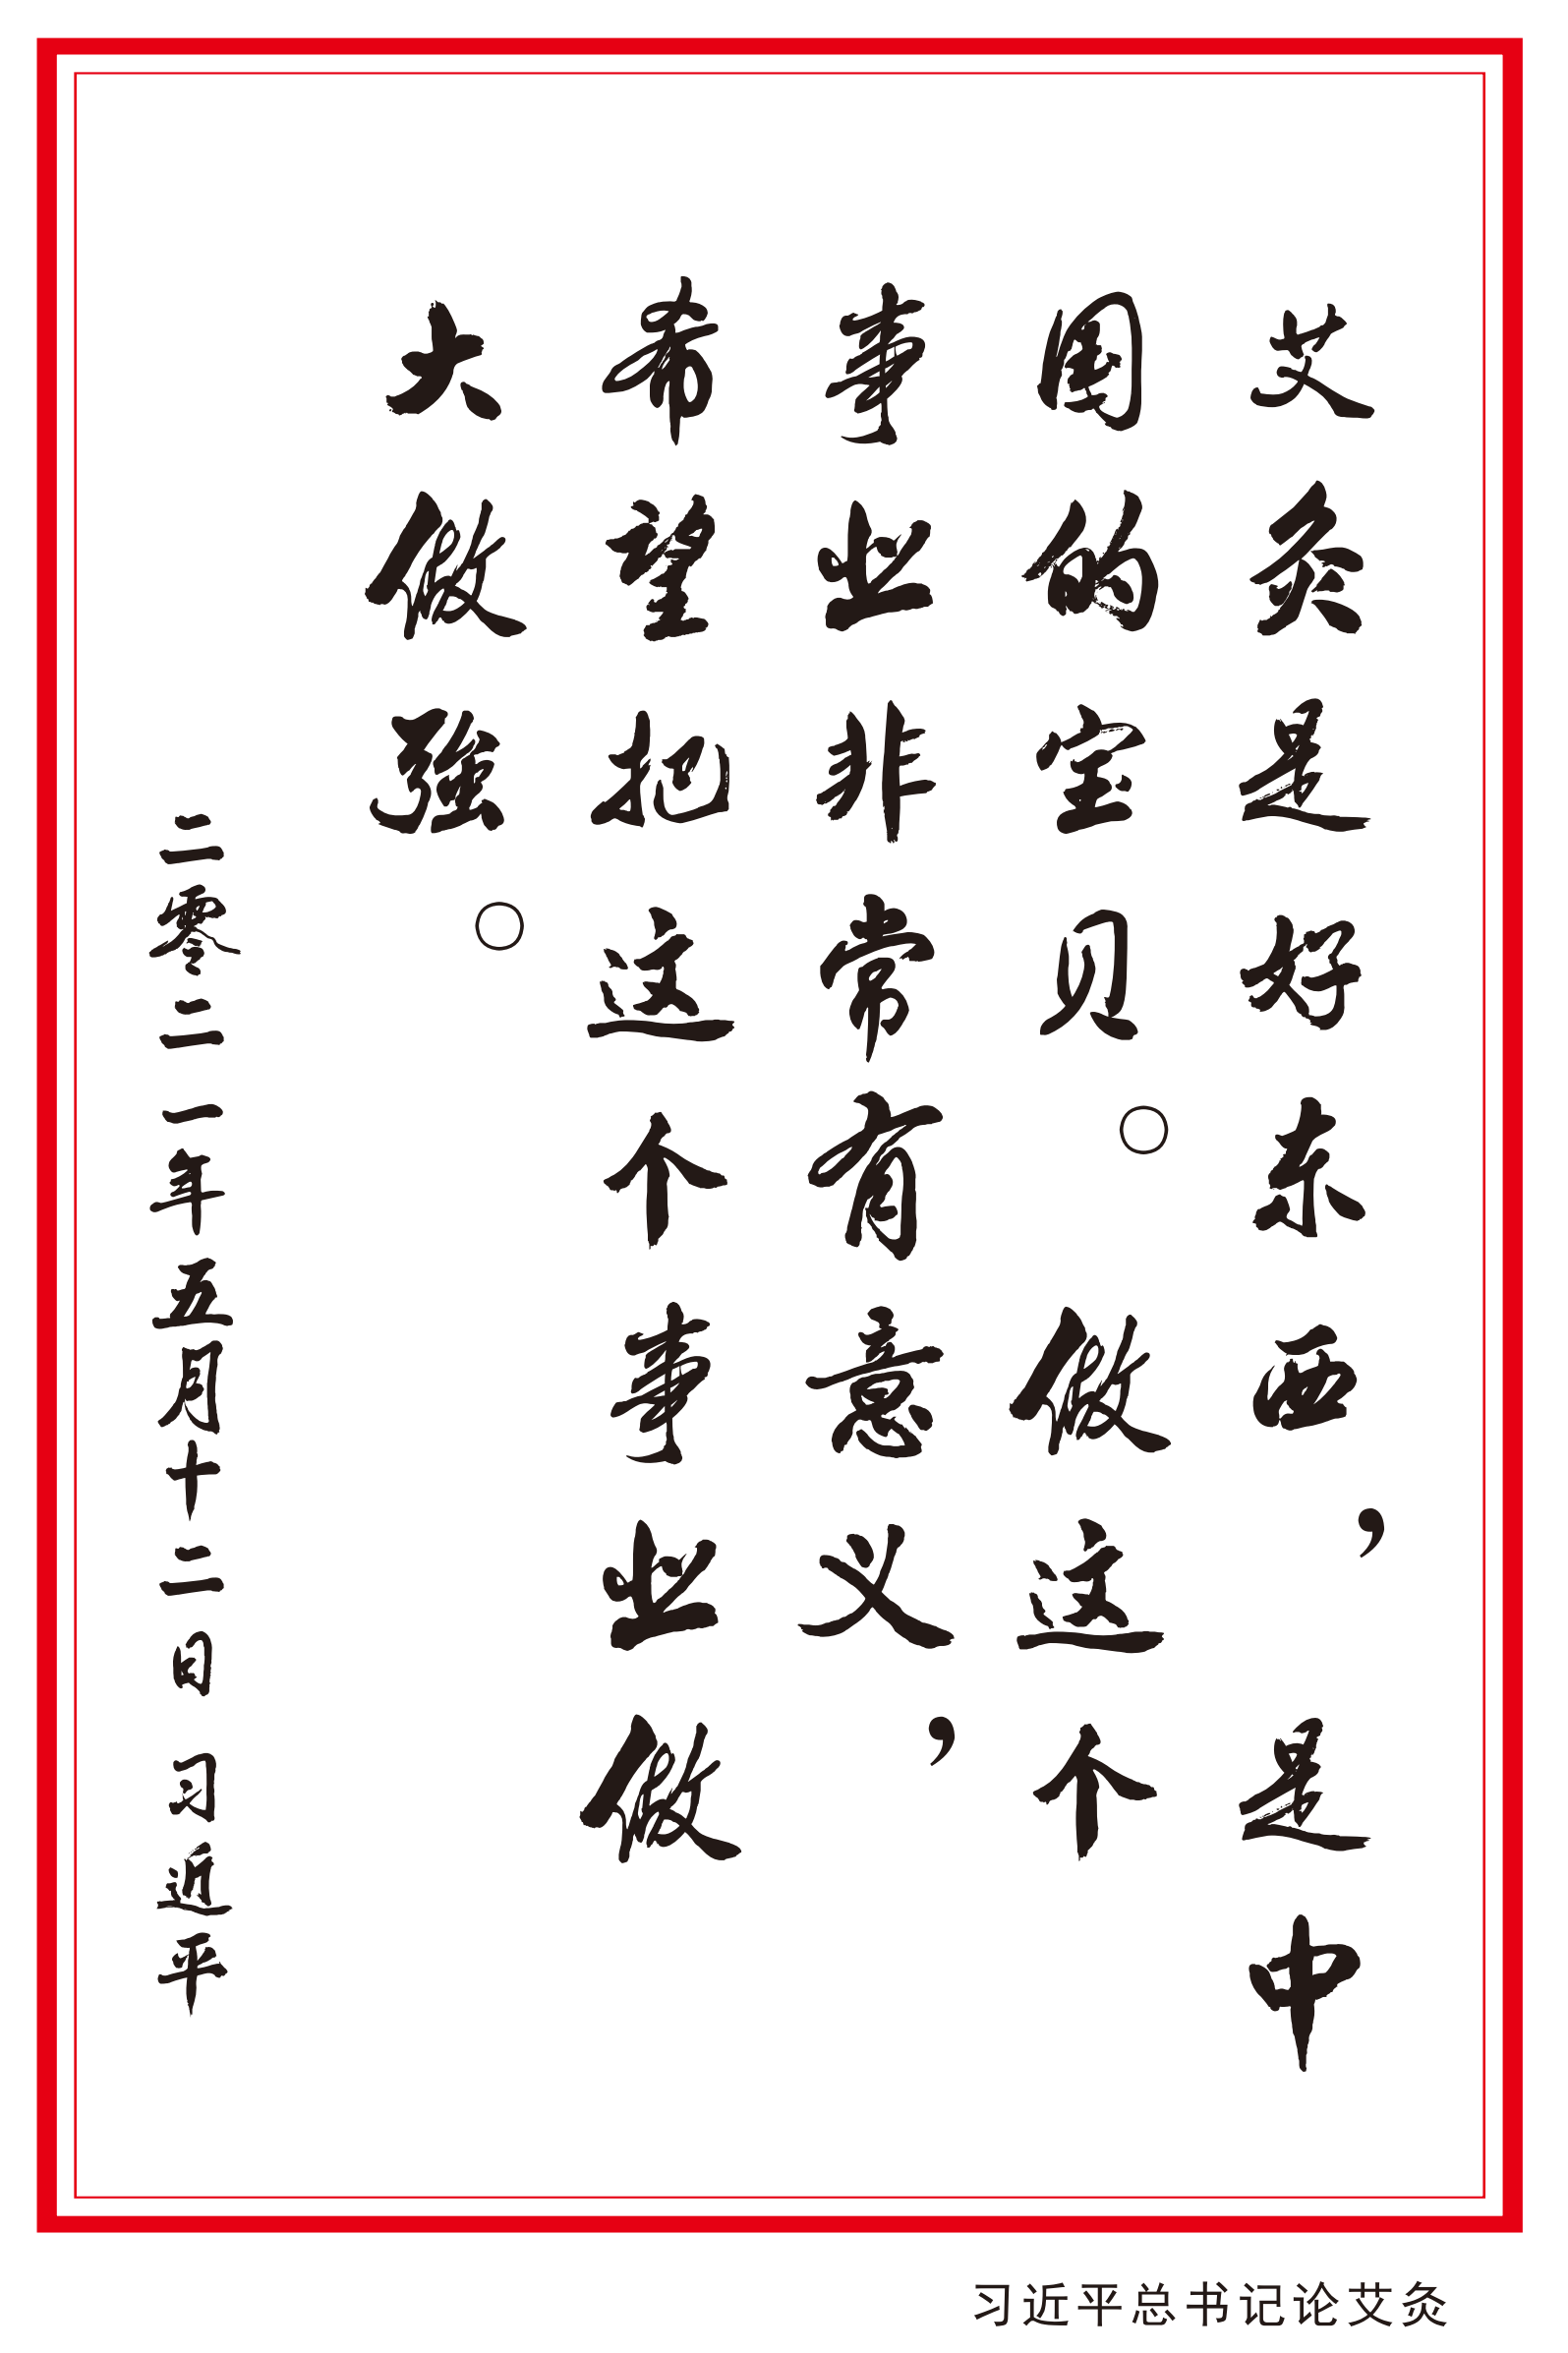 艾灸是好东西，是中
国的宝贝。做这个
事业非常有意义，
希望把这个事业做
大做强。
二零二一年五月十二日 习近平
习近平总书记论艾灸